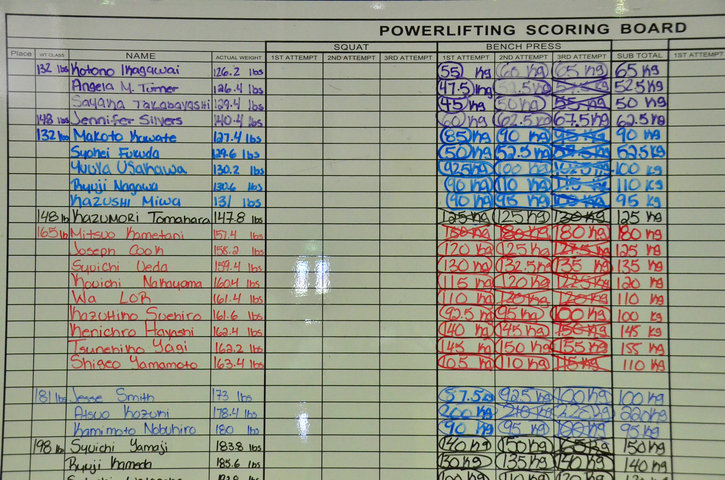 POWERLIFTING SCORING BOARD
SQUAT BENCH PRESS
Place WT CLASS NAME ACTUAL WEIGHT 1ST ATTEMPT 2ND ATTEMPT 3RD ATTEMPT 1ST ATTEMPT 2ND ATTEMPT 3RD ATTEMPT SUB TOTAL 1ST ATTEMPT
132 lbs Kotono Ikagawai 126.2 lbs 55 kg 60 kg 65 kg 65 Kg
Angela M. Turner 126.4 lbs 47.5 kg 52.5 Kg
Sayaka Takabayashi 129.4 lbs 45 kg 50 kg 55 kg 50 Kg
148 lbs Jennifer Silvers 140.4 lbs 60 kg 62.5 kg 67.5 kg 62.5 Kg
132 lbs Makoto Kuwate 127.4 lbs 85 kg 90 kg 95 kg 90 Kg
Syohei Fukuda 129.6 lbs 50 kg 52.5 kg 52.5 Kg
Yuuka Usakawa 130.2 lbs 92.5 kg 100 kg 102.5 kg 100 kg
Ryuji Nagawa 130.6 lbs 90 kg 110 kg 115 kg 110 Kg
Kazushi Miwa 131 lbs 90 kg 95 kg 95 Kg
148 lb Kazumori Tomahara 147.8 lbs 125 kg 125 kg 130 kg 125 Kg
165 lb Mitsuo Kametani 157.4 lbs 180 kg 180 kg 180 Kg
Joseph Cook 158.2 lbs 120 kg 125 kg 125 Kg
Syuichi Ueda 159.4 lbs 130 kg 132.5 kg 135 kg 135 Kg
Kouichi Nakayama 160.4 lbs 115 kg 120 kg 122.5 kg 120 Kg
Wa Lor 161.4 lbs 110 kg 120 kg 120 kg 110 Kg
Kazuhiko Suehiro 161.6 lbs 92.5 kg 95 kg 100 kg 100 Kg
Kenichro Hayashi 162.4 lbs 140 kg 145 kg 150 kg 145 Kg
Tsunehiko Yagi 162.2 lbs 145 kg 150 kg 155 kg 155 Kg
Shigeo Yamamoto 163.4 lbs 105 kg 110 kg 115 kg 110 Kg
181 lb Jesse Smith 173 lbs 57.5 kg 92.5 kg 100 kg 100 Kg
Atsuo Kozumi 178.4 lbs 200 kg 210 kg 220 kg 220 Kg
Kamimoto Nobuhiro 180 lbs 90 kg 95 kg 100 kg 95 Kg
198 lb Syuichi Yamaji 183.8 lbs 140 kg 150 kg 165 kg 150 Kg
Ryuji Kameda 185.6 lbs 130 kg 135 kg 140 kg 140 Kg